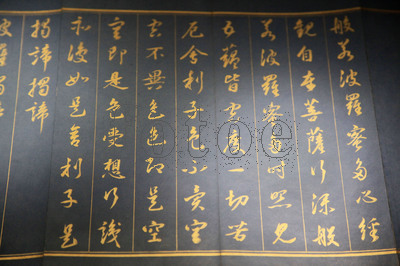 般若波羅蜜多心經
觀自在菩薩行深般
若波羅蜜多時照見
五蘊皆空度一切苦
厄舍利子色不異空
空不異色色即是空
空即是色受想行識
亦復如是舍利子是
揭諦揭諦